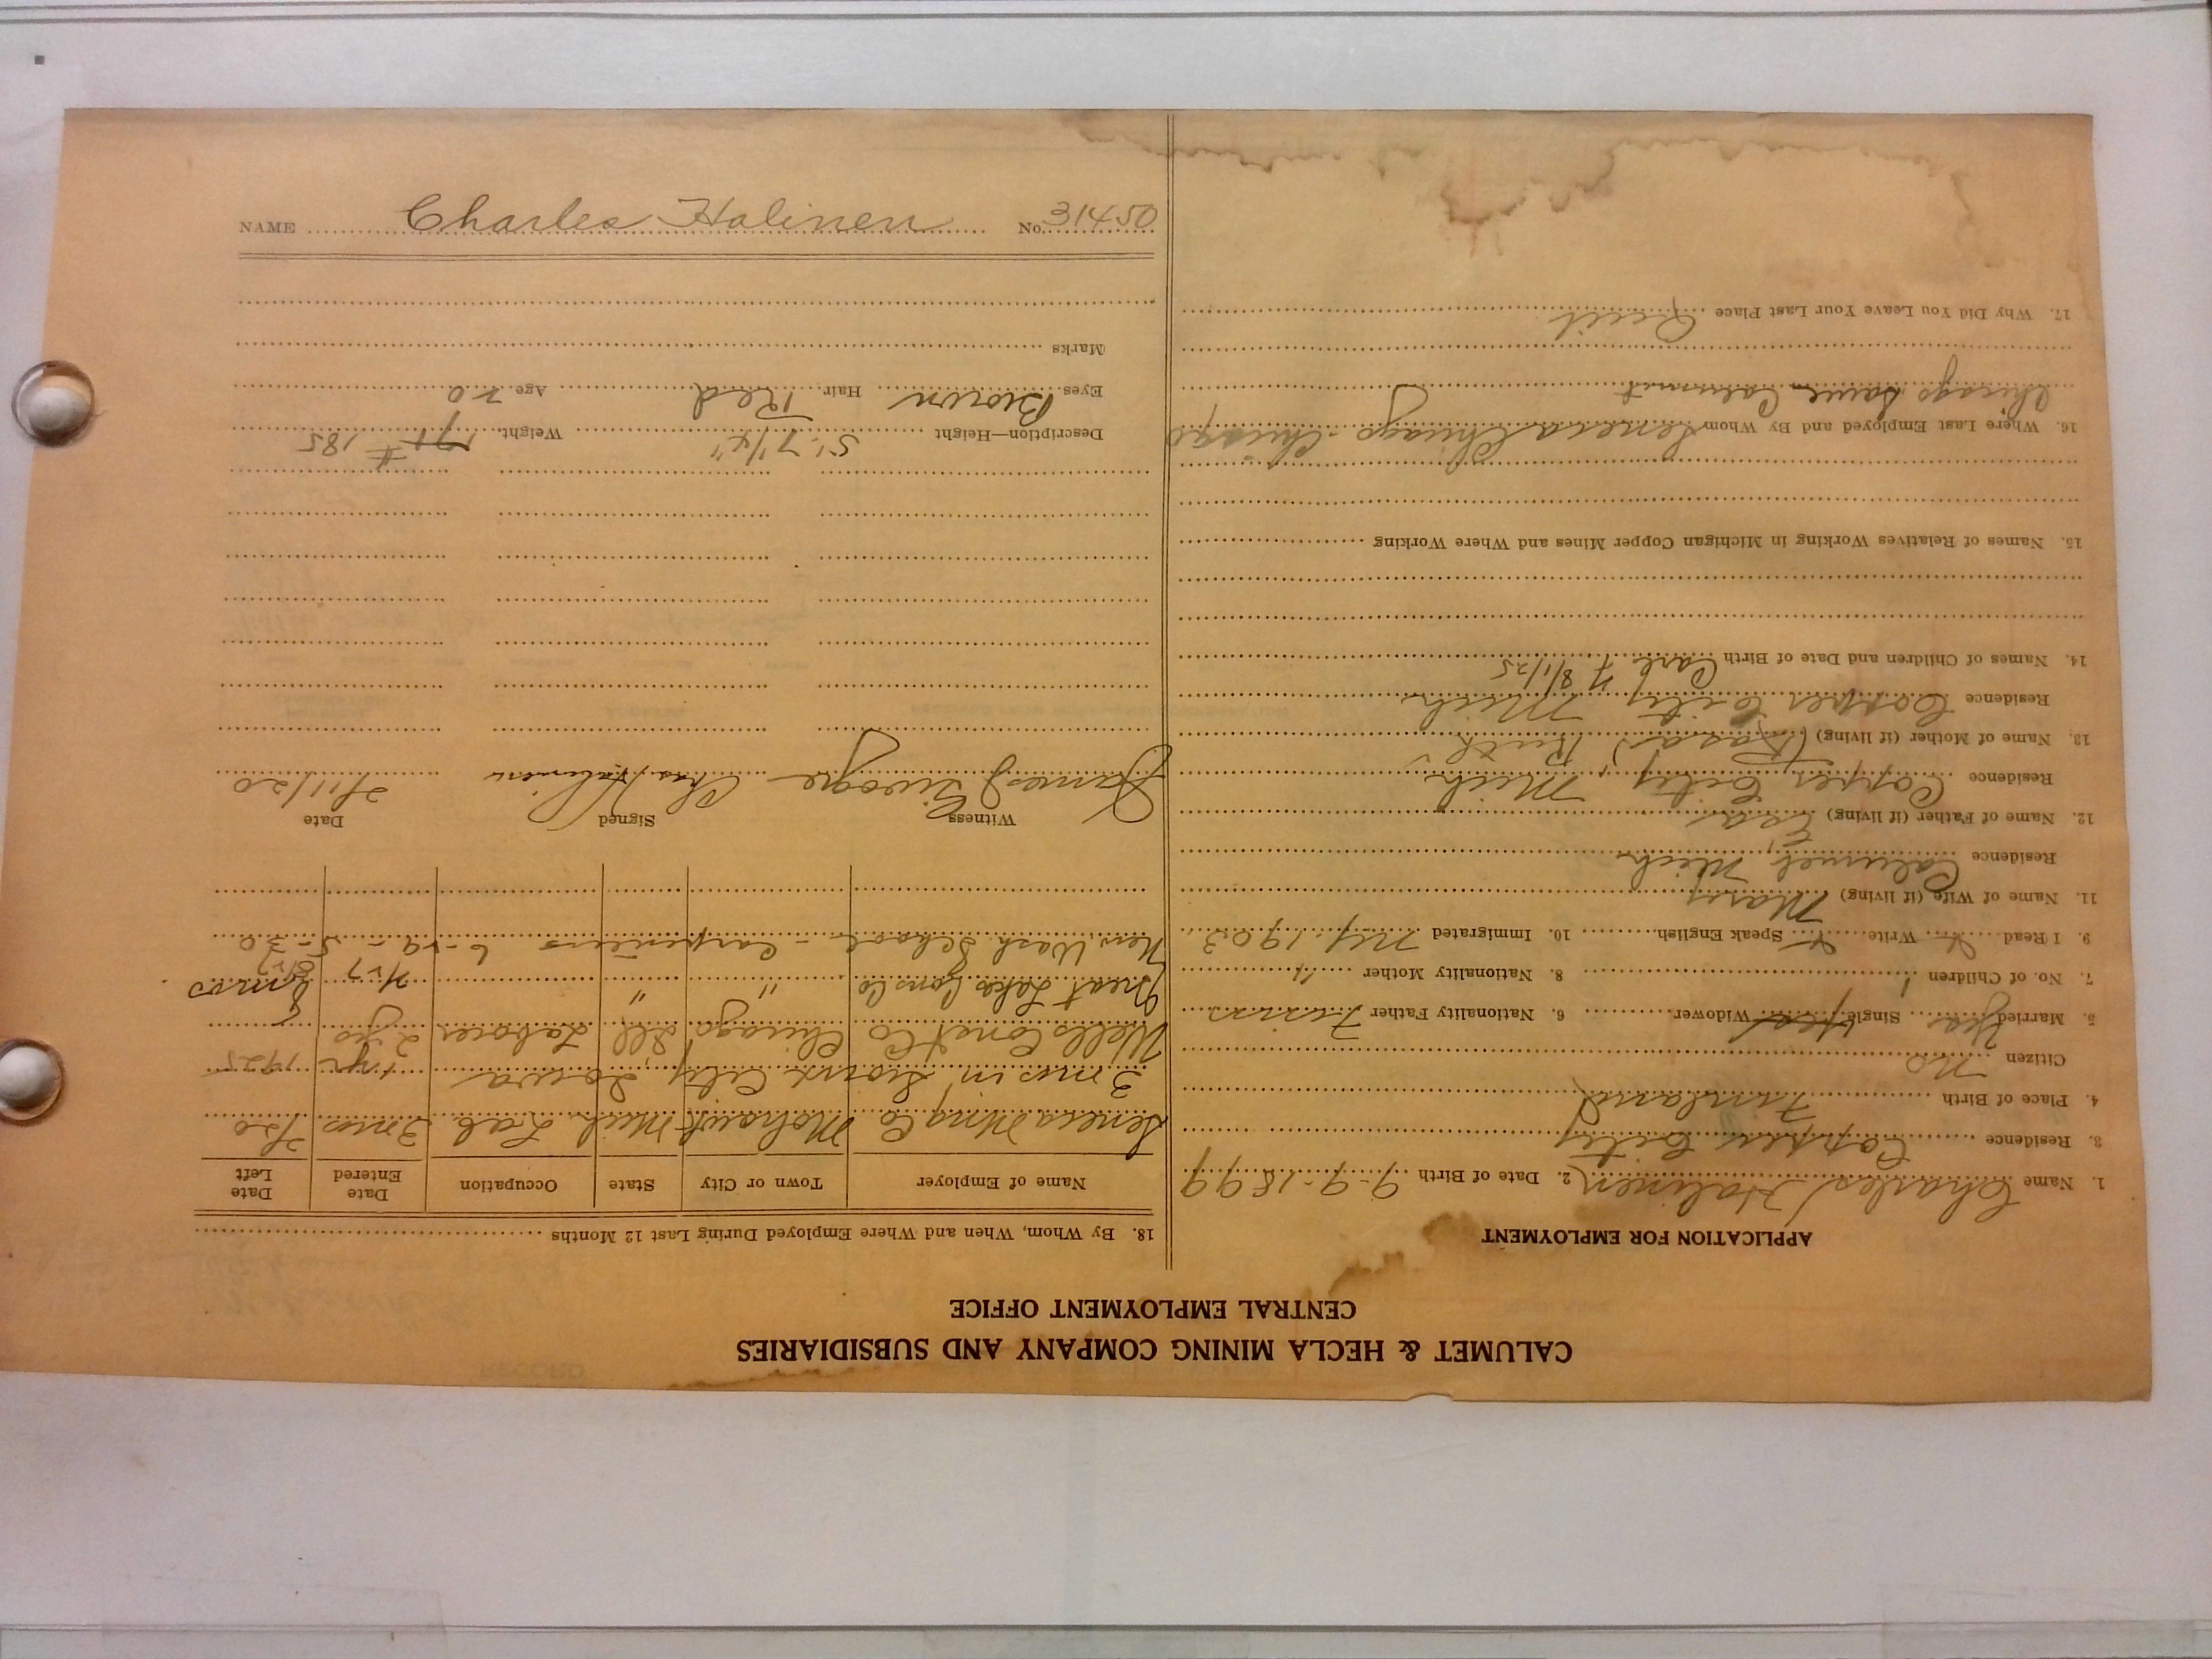 CALUMET & HECLA MINING COMPANY AND SUBSIDIARIES
CENTRAL EMPLOYMENT OFFICE
APPLICATION FOR EMPLOYMENT
1. Name Charles Halinen 2. Date of Birth 9-9-1899
3. Residence Copper City
4. Place of Birth Finland
Citizen no
5. Married Yes Single Widower 6. Nationality Father Finn
7. No. of Children 1 8. Nationality Mother "
9. I Read Write Speak English 10. Immigrated N.Y. 1903
11. Name of Wife (if living) Mary
Residence Calumet, Mich
12. Name of Father (if living) Esa
Residence Copper City, Mich
13. Name of Mother (if living) (Kasa)
Residence Copper City Mich
14. Names of Children and Date of Birth Carl 8/1/25
15. Names of Relatives Working in Michigan Copper Mines and Where Working
16. Where Last Employed and By Whom Seneca Chicago - Chicago
Chicago Calumet
17. Why Did You Leave Your Last Place Quit
18. By Whom, When and Where Employed During Last 12 Months
Name of Employer Town or City State Occupation Date Entered Date Left
Seneca Mng Co Mohawk Mich Lab. 3 mos 7/20
3 mos in Sioux City, Iowa 1 yr 1925
Wells Const Co Chicago Ill Laborer 2 yrs
Great Lakes Cons Co " " 7/27 8/27 8 mos
New Wash School - Carpenters 6-29 - 5-30
Witness Signed Date
James Chas. Halinen 2/11/20
Description—Height 5' 7 1/4" Weight 171 # 185
Eyes Brown Hair Red Age 20
Marks
NAME Charles Halinen No. 31450
RECORD